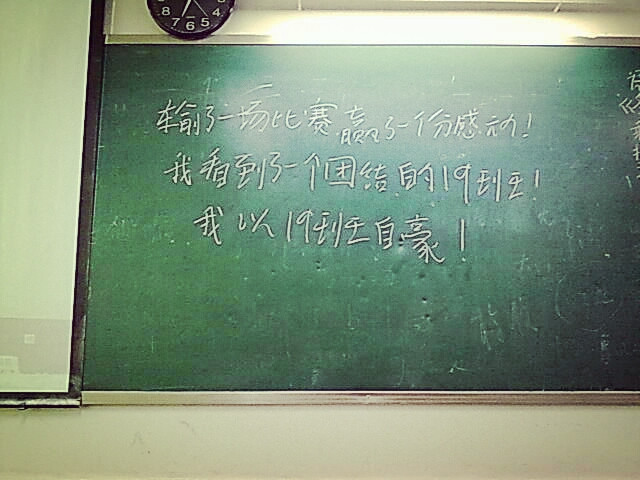 8 7 6 5 4
输了一场比赛赢了一份感动!
我看到了一个团结的19班!
我以19班自豪!